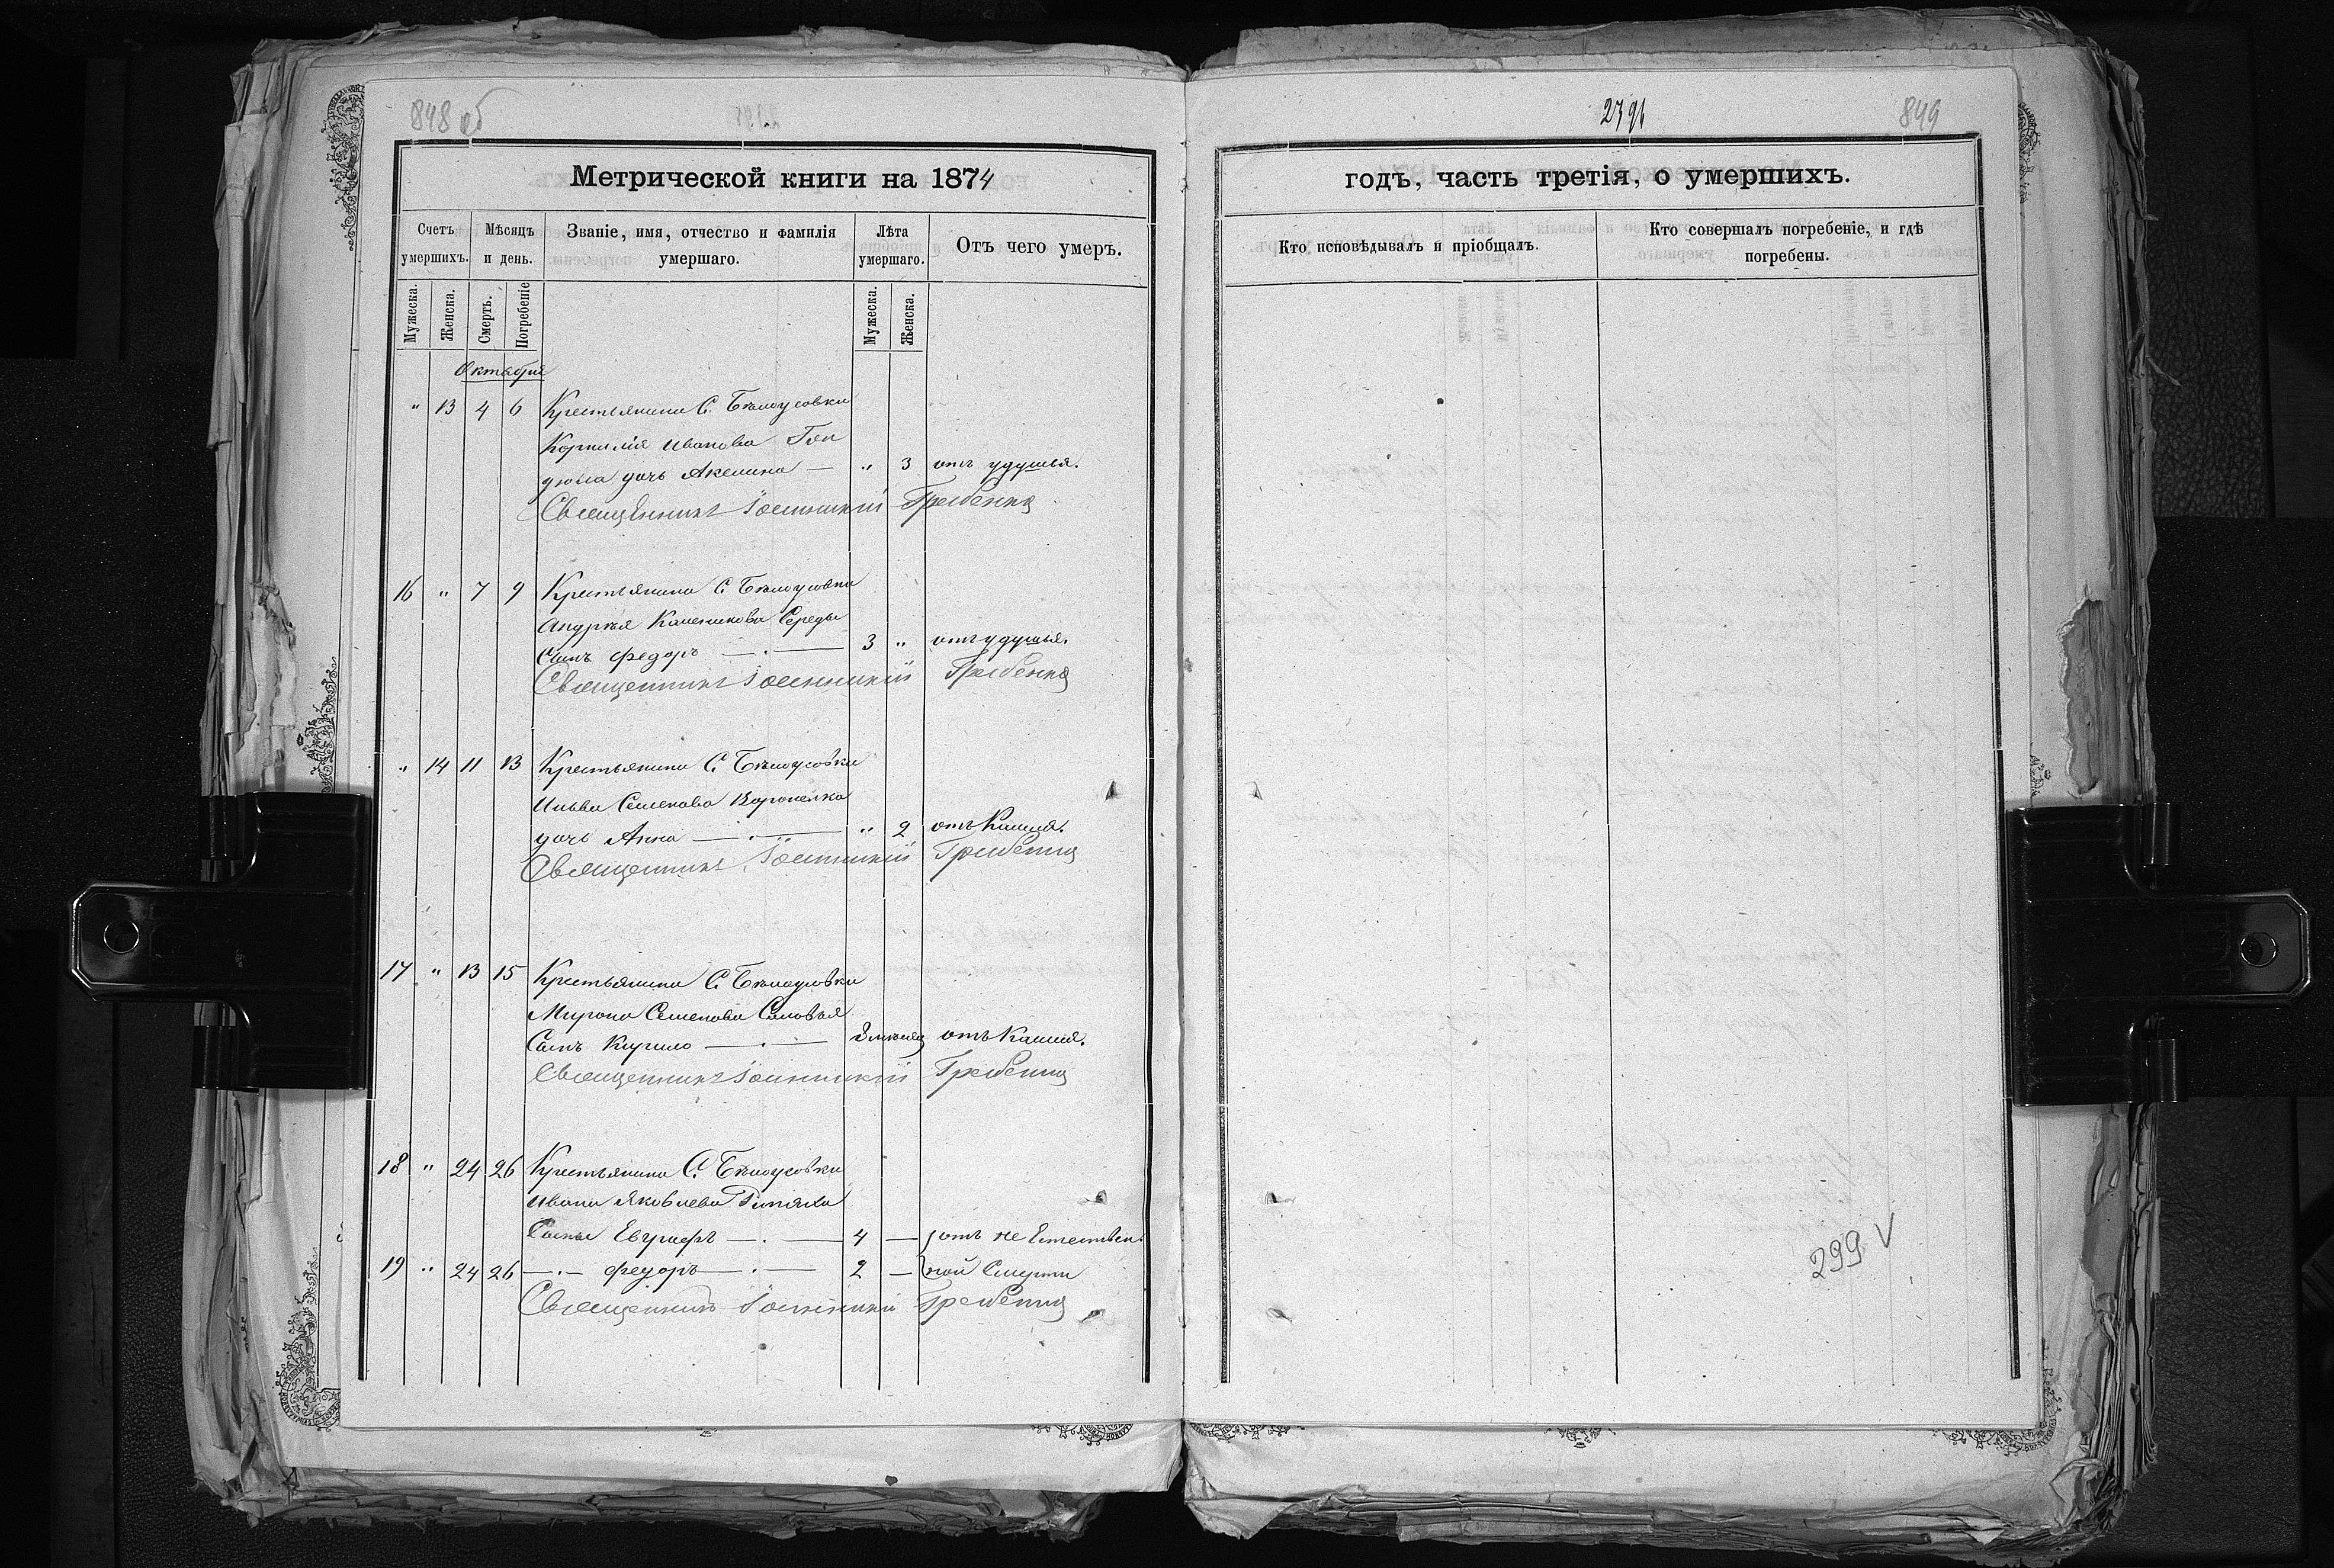 848 об
Метрической книги на 1874
Счетъ умершихъ.
Мѣсяцъ и день.
Званіе, имя, отчество и фамилія умершаго.
Лѣта умершаго.
Отъ чего умеръ.
Мужеска.
Женска.
Смерть.
Погребеніе
Мужеска.
Женска.
Октября
" 13 4 6 Крестьянина С. Бѣлоусовки
Корнилія Иванова Гон
дюла дочь Акелина — " 3 отъ удушья.
Священникъ Іоанникій Гребенка
16 " 7 9 Крестьянина С. Бѣлоусовки
Андрея Каленикова Середы
Сынъ Федоръ 3 " отъ удушья.
Священникъ Іоанникій Гребенка
" 14 11 13 Крестьянина С. Бѣлоусовки
Ильи Семенова
дочь Анна " 2 отъ Кашля.
Священникъ Іоанникій Гребенка
17 " 13 15 Крестьянина С. Бѣлоусовки
Мирона Семенова Соловья
Сынъ Кирило отъ Кашля.
Священникъ Іоанникій Гребенка
18 " 24 26 Крестьянина С. Бѣлоусовки
Ивана Яковлева
Сыны Евграфъ 4 — отъ не Естествен
19 " 24 26 —"— Федоръ 2 — ной Смерти
Священникъ Іоанникій Гребенка
849
годъ, часть третія, о умершихъ.
Кто исповѣдывалъ и пріобщалъ.
Кто совершалъ погребеніе, и гдѣ погребены.
299 V